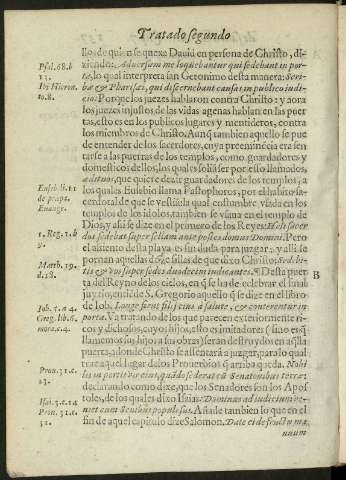 Tratado segundo
llos de quien se quexa Dauid en persona de Christo, di-
ziendo: Aduersum me loquebantur qui sedebant in por-
ta, lo qual interpreta san Geronimo desta manera: Scri-
bæ & Pharisæi, qui discernebant causas in publico iudi-
cio: Porque los juezes hablaron contra Christo: y aora
los juezes injustos de las vidas agenas hablan en las puer
tas, esto es en los publicos lugares y mentideros, contra
los miembros de Christo. Aunq̃ tambien aquello se pue
de entender de los sacerdotes, cuya preeminẽcia era sen
tarse a las puertas de los templos, como guardadores y
domesticos dellos, los quales solià ser por esto llamados,
æditui, que quiere dezir guardadores de los templos, a
los quales Eusebio llama Pastophoros, por el habito sa-
cerdotal de que se vestià, la qual costumbre vsada en los
templos de los idolos, tambien se vsaua en el templo de
Dios, y assi se dize en el primero de los Reyes: Heli sacer
dos sedebat super sellam ante postes domus Domini. Pero
el assiento desta playa es sin duda para juzgar: y alli se
pornan aquellas doze sillas de que dizo Christo: Sede-
bitis & vos super sedes duodecim iudicantes. ¶ Desta puerta
del Reyno de los cielos, en q̃ se ha de celebrar el final
juyzio, entiẽde S. Gregorio aquello q̃ se dize en el libro
de Iob. Longe fient filij eius à salute, & conterentur in
porta. Va tratando de los que parecen exteriormente ri-
cos y dichosos, cuyos hijos, esto es imitadores (sino es q̃
llamemos sus hijos a sus obras) seràn destruydos en aq̃sta
puerta, adonde Christo se assentarà a juzgar, para lo qual
trae aquel lugar de los Prouerbios q̃ arriba queda. Nobi-
lis in portis vir eius, quãdo sederit cũ Senatoribus terræ:
declarando como dize, que los Senadores son los Apos-
toles, de los quales dixo Isaias: Dominus ad iudicium ve-
niet cum Senibus populi sui. Añade tambien lo que en el
fin de aquel capitulo dize Salomon. Date ei de fructu ma
nuum
Psal. 68. b
13.
Div Hieron.
to. 8.
Euseb. li. 11
de præpa.
Euange.
1. Reg. 1. b
9.
Matth. 19.
d. 28.
B
Iob. 5. a 4.
Greg. lib. 6.
mora. c. 4.
Prou. 31. c.
23.
Isai. 3. c. 14
Prou. 31. c.
31.